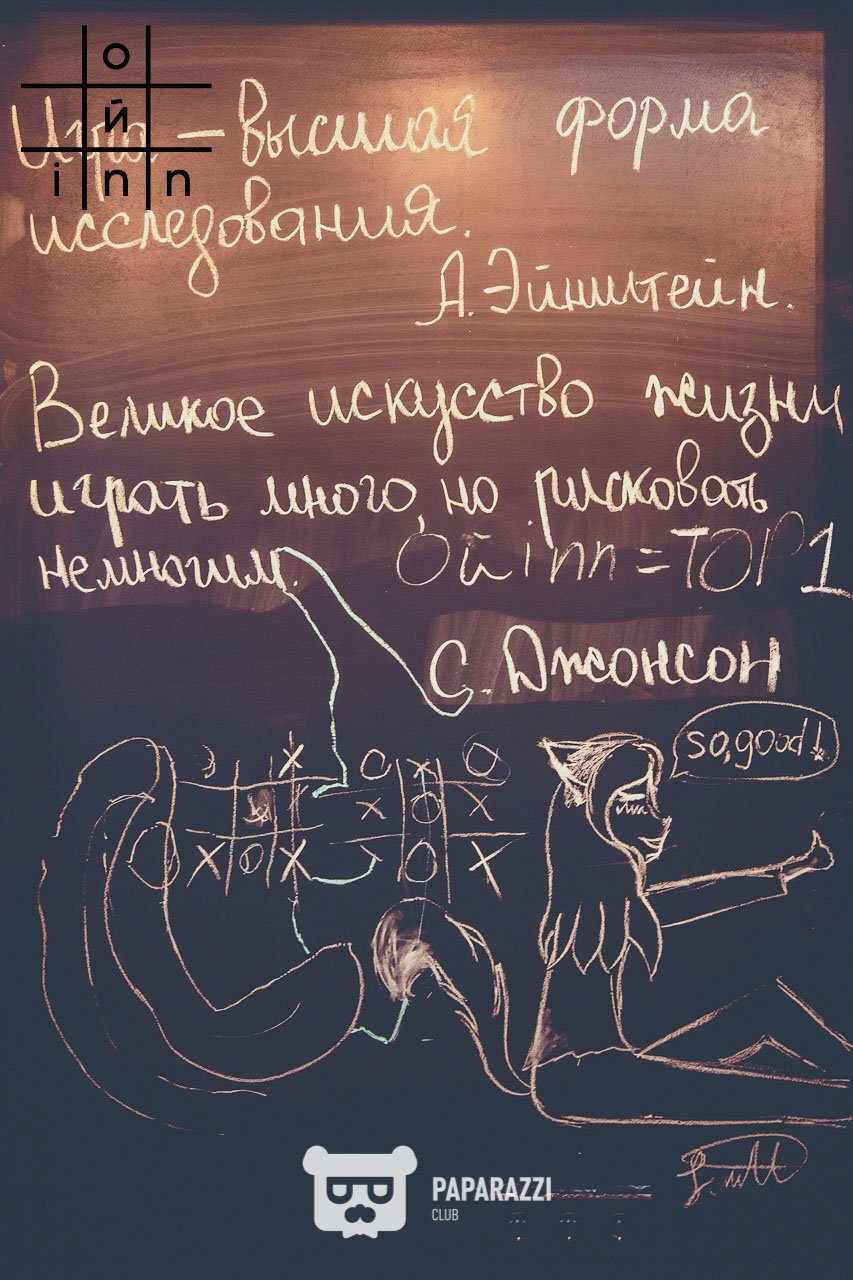 о
й
inn
Игра – высшая форма
исследования.
А. Эйнштейн.
Великое искусство жизни
играть много, но рисковать
немногим.
Ой inn = TOP 1
С. Джонсон
so, good!
O X
X
O X O X
X O X
O X
PAPARAZZI
CLUB